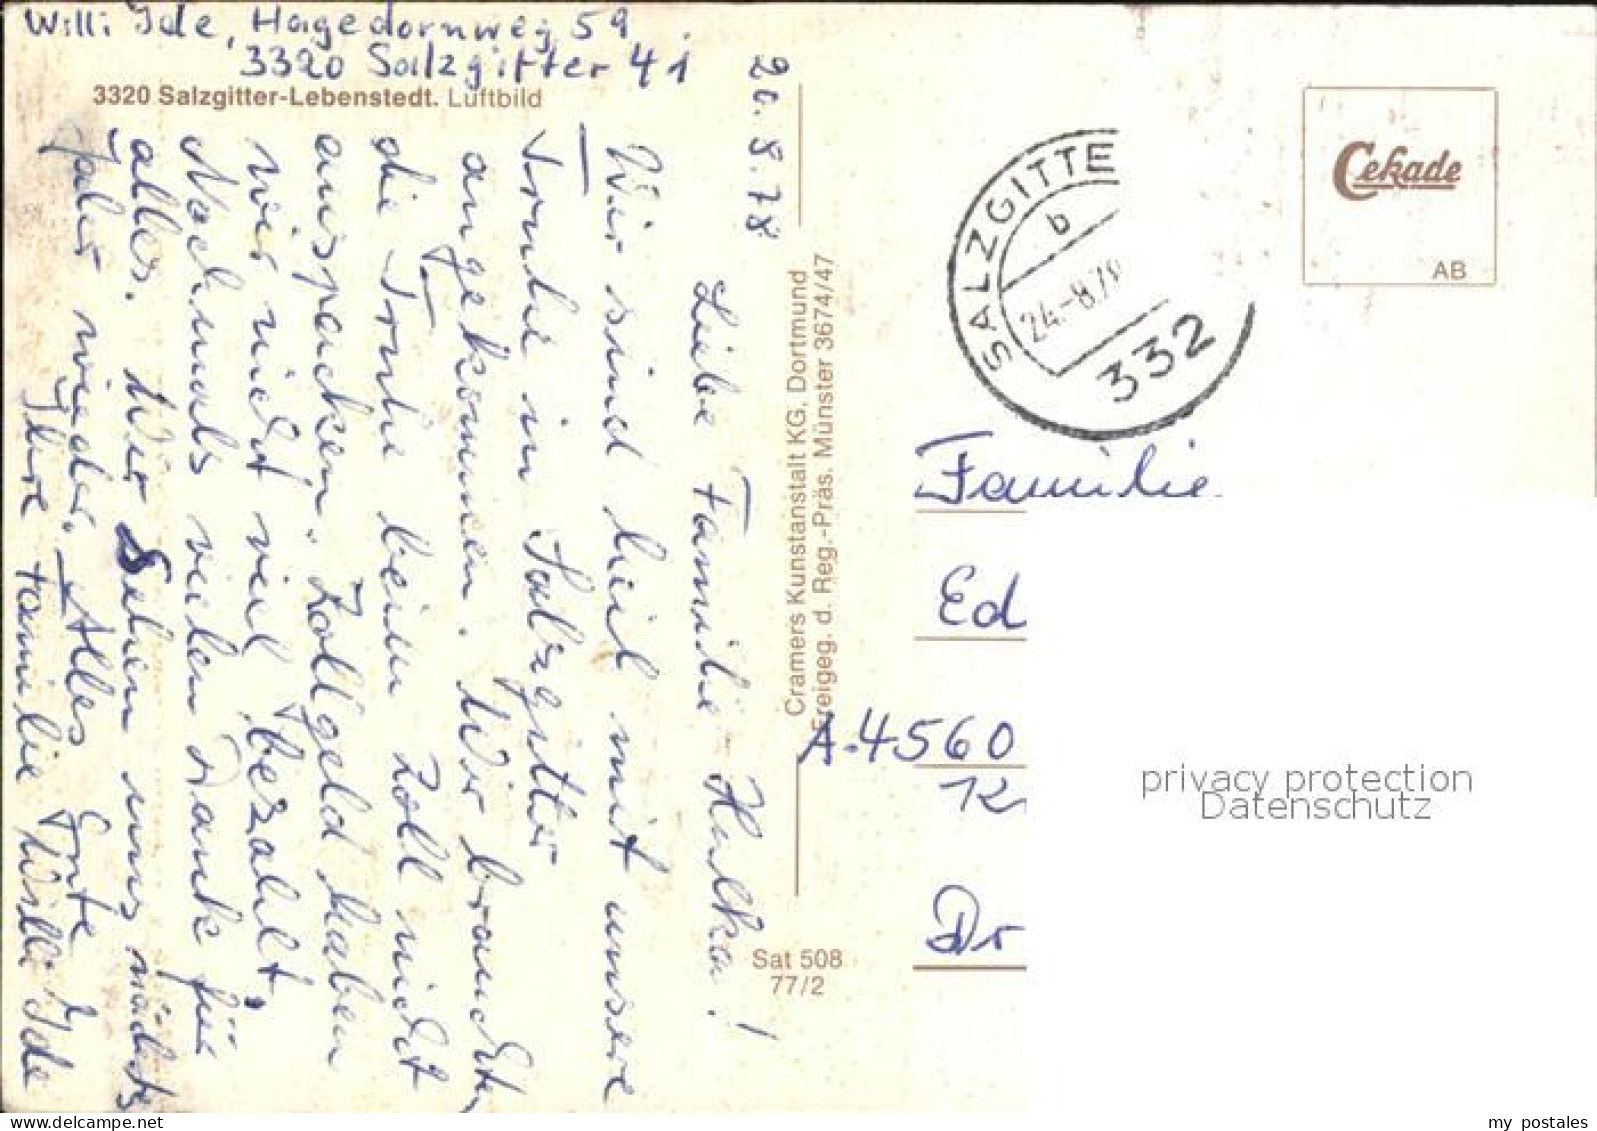 Willi Ide, Hagedornweg 59
3320 Salzgitter 41
3320 Salzgitter-Lebenstedt. Luftbild
20.8.78
Liebe Familie Hulka!
Wir sind heil mit unsere
Truhe in Salzgitter
angekommen. Wir brauchten
die Truhe beim Zoll nicht
auspacken, Zollgeld haben
wir nicht viel bezahlt,
Nochmals vielen Dank für
alles. Wir Sehen uns nächstes
Jahr wieder. Alles Gute
Ihre Familie Willi Ide
Cramers Kunstanstalt KG, Dortmund
Freigeg. d. Reg.-Präs. Münster 3674/47
Sat 508
77/2
SALZGITTE
b
24.-8.78
332
Cekade
AB
Familie
Ed
A-4560
12
Dr
privacy protection
Datenschutz
my postales